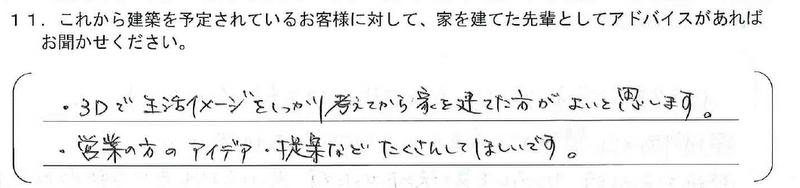 11．これから建築を予定されているお客様に対して、家を建てた先輩としてアドバイスがあれば
お聞かせください。
・3Dで生活イメージをしっかり考えてから家を建てた方がよいと思います。
・営業の方のアイデア・提案などたくさんしてほしいです。